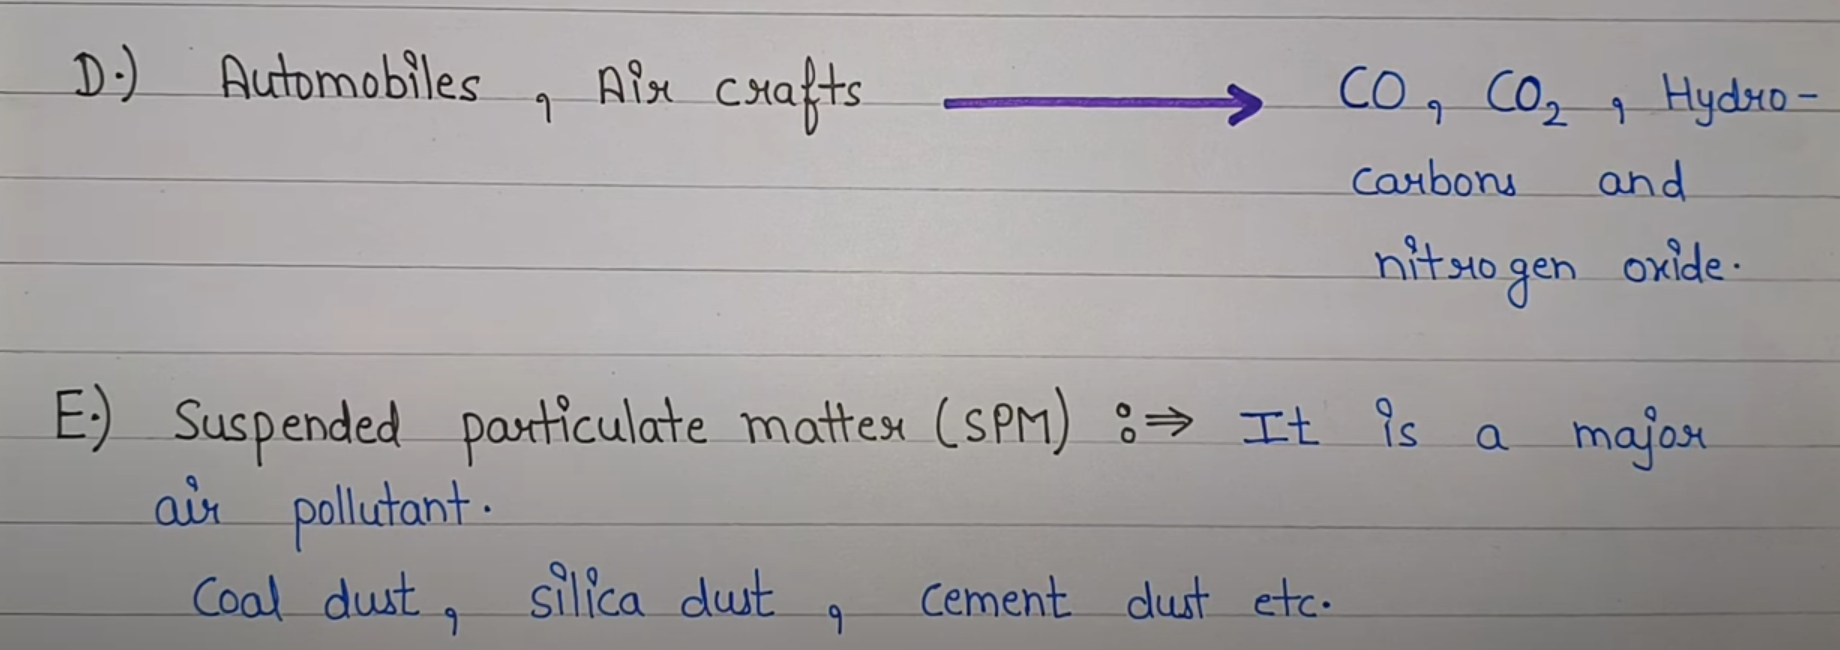 D.) Automobiles , Air crafts ⟶ CO, CO₂ , Hydro-
carbons and
nitrogen oxide.
E.) Suspended particulate matter (SPM) :⇒ It is a major
air pollutant.
Coal dust, silica dust , cement dust etc.